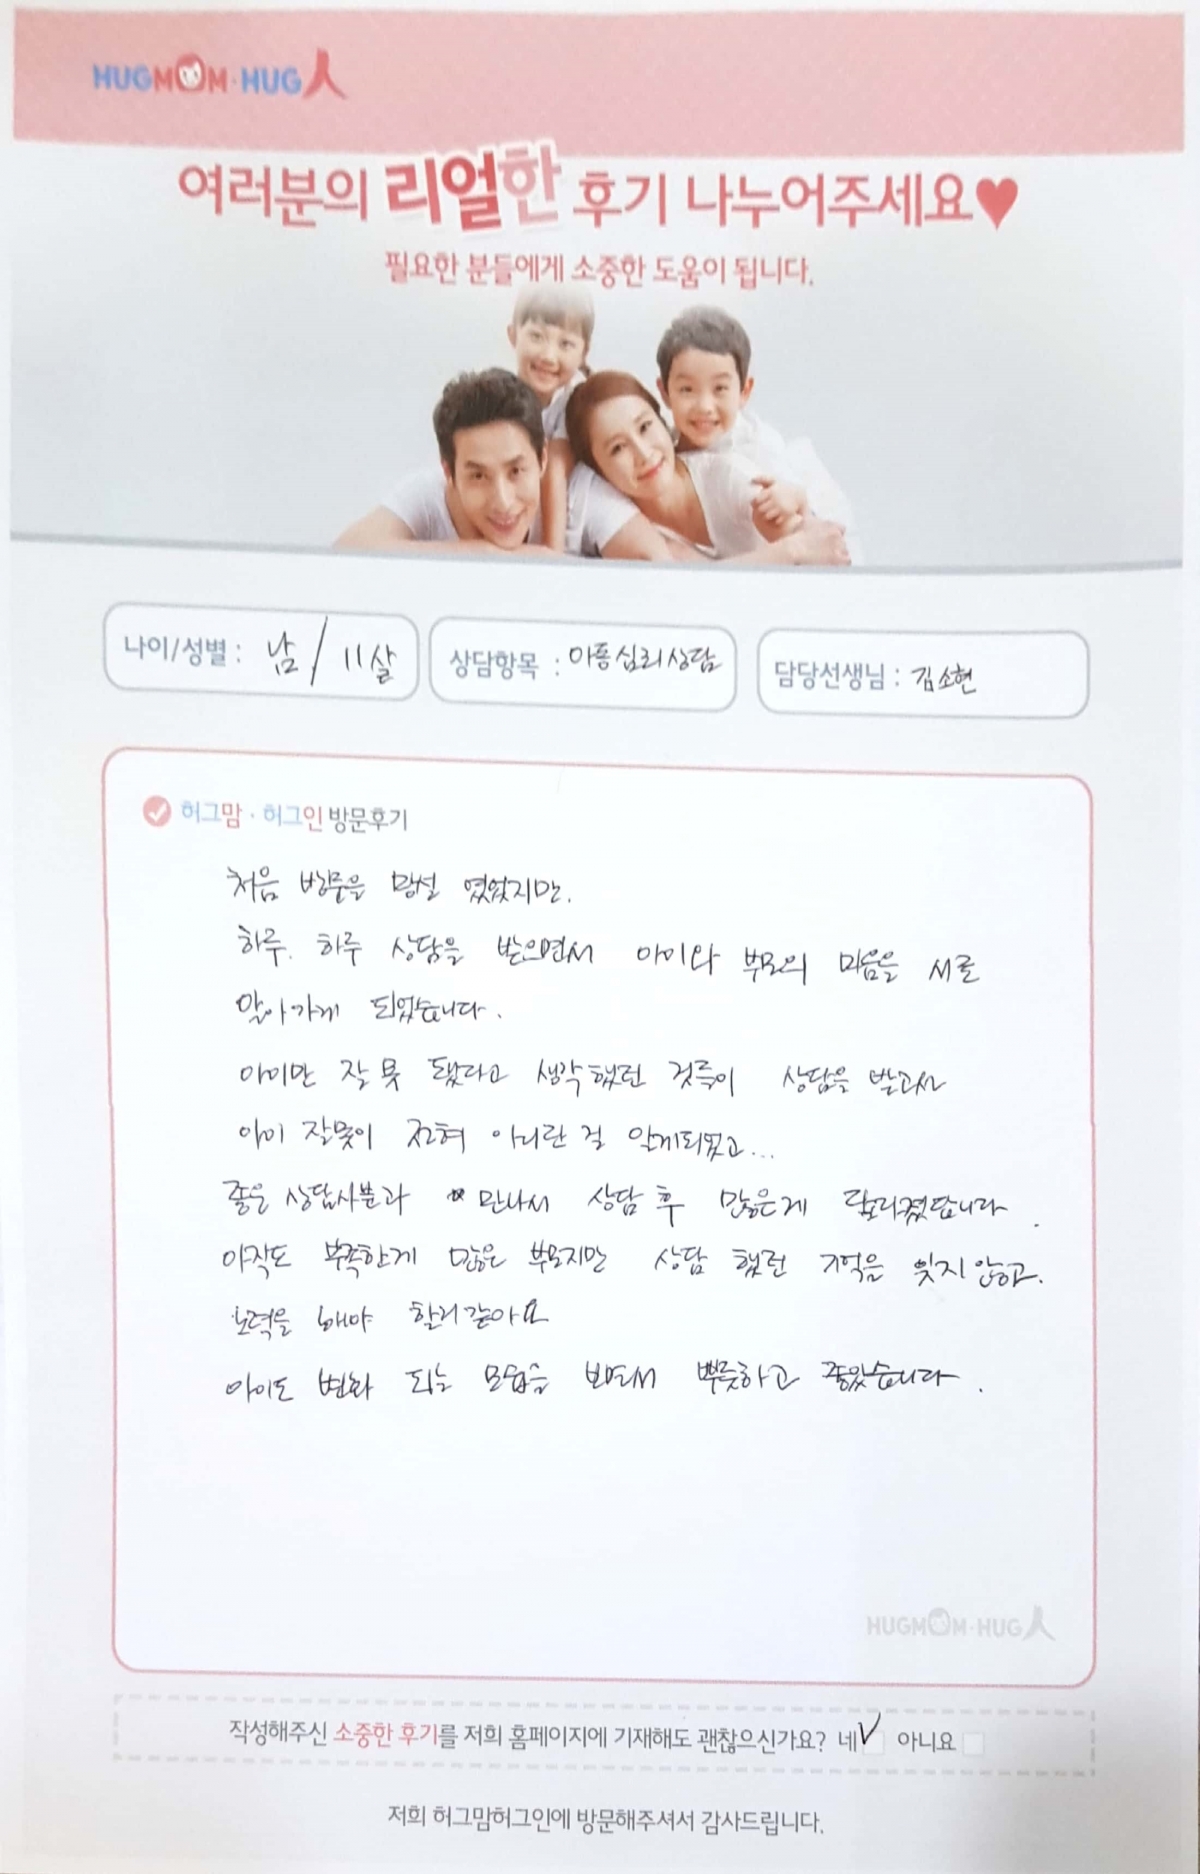 HUGMOM·HUG人
여러분의 리얼한 후기 나누어주세요♥
필요한 분들에게 소중한 도움이 됩니다.
나이/성별 : 남/11살 상담항목 : 아동심리상담 담당선생님 : 김소현
허그맘·허그인 방문후기
처음 방문을 망설 였었지만.
하루. 하루 상담을 받으면서 아이와 부모의 마음을 서로
알아가게 되었습니다.
아이만 잘 못 됐다고 생각했던 것들이 상담을 받고서
아이 잘못이 전혀 아니란 걸 알게되었고...
좋은 상담사분과 만나서 상담 후 많은게 달라졌답니다.
아직도 부족한게 많은 부모지만 상담 했던 기억을 잊지 않고.
노력을 해야 할거같아요
아이도 변화 되는 모습을 보면서 뿌듯하고 좋았습니다.
HUGMOM·HUG人
작성해주신 소중한 후기를 저희 홈페이지에 기재해도 괜찮으신가요? 네 V 아니요
저희 허그맘허그인에 방문해주셔서 감사드립니다.